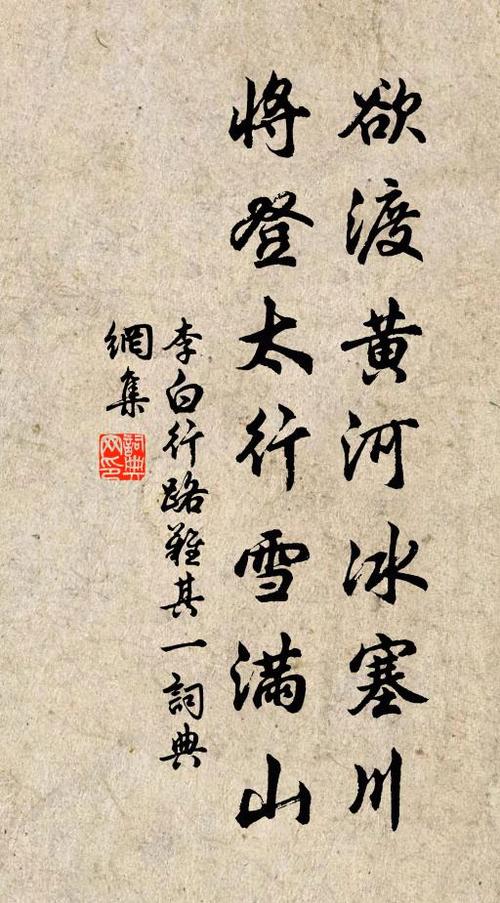 欲渡黄河冰塞川
将登太行雪满山
李白行路難其一詞典
網集
詞典
网印